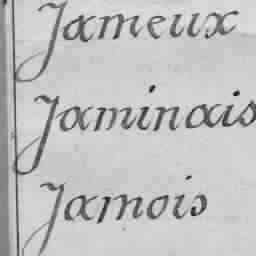 Jameux
Jaminais
Jamois